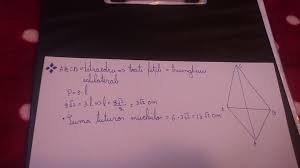 ABCD = tetraedru ⇒ toate fețele = triunghiuri
echilaterale
P = 3·l
9√2 = 3l ⇒ l = 9√2/3 = 3√2 cm
Suma tuturor muchiilor = 6·3√2 = 18√2 cm